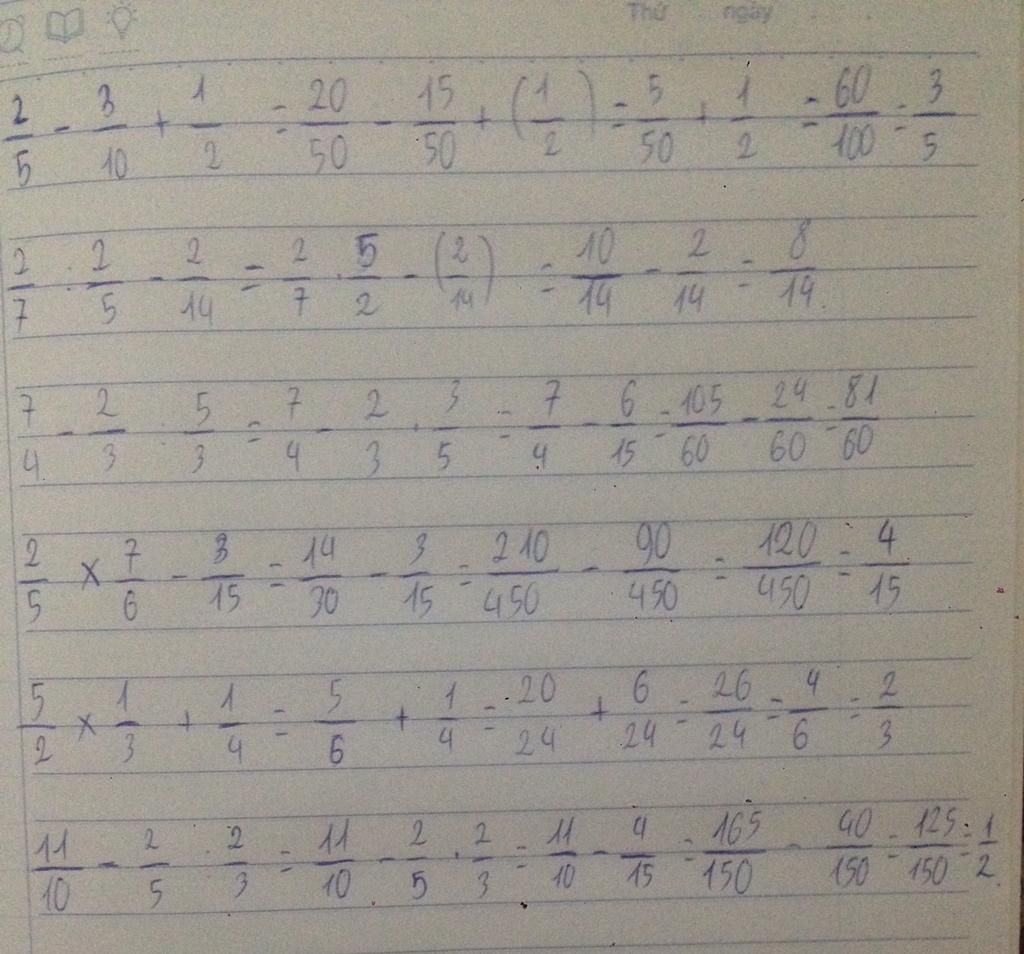 Thứ ngày
2/5 - 3/10 + 1/2 = 20/50 - 15/50 + (1/2) = 5/50 + 1/2 = 60/100 = 3/5
2/7 : 2/5 - 2/14 = 2/7 . 5/2 - (2/14) = 10/14 - 2/14 = 8/14.
7/4 - 2/3 : 5/3 = 7/4 - 2/3 . 3/5 = 7/4 - 6/15 = 105/60 - 24/60 = 81/60
2/5 x 7/6 - 3/15 = 14/30 - 3/15 = 210/450 - 90/450 = 120/450 = 4/15
5/2 x 1/3 + 1/4 = 5/6 + 1/4 = 20/24 + 6/24 = 26/24 = 4/6 = 2/3
11/10 - 2/5 . 2/3 = 11/10 - 2/5 . 2/3 = 11/10 - 4/15 = 165/150 - 40/150 = 125/150 = 1/2.